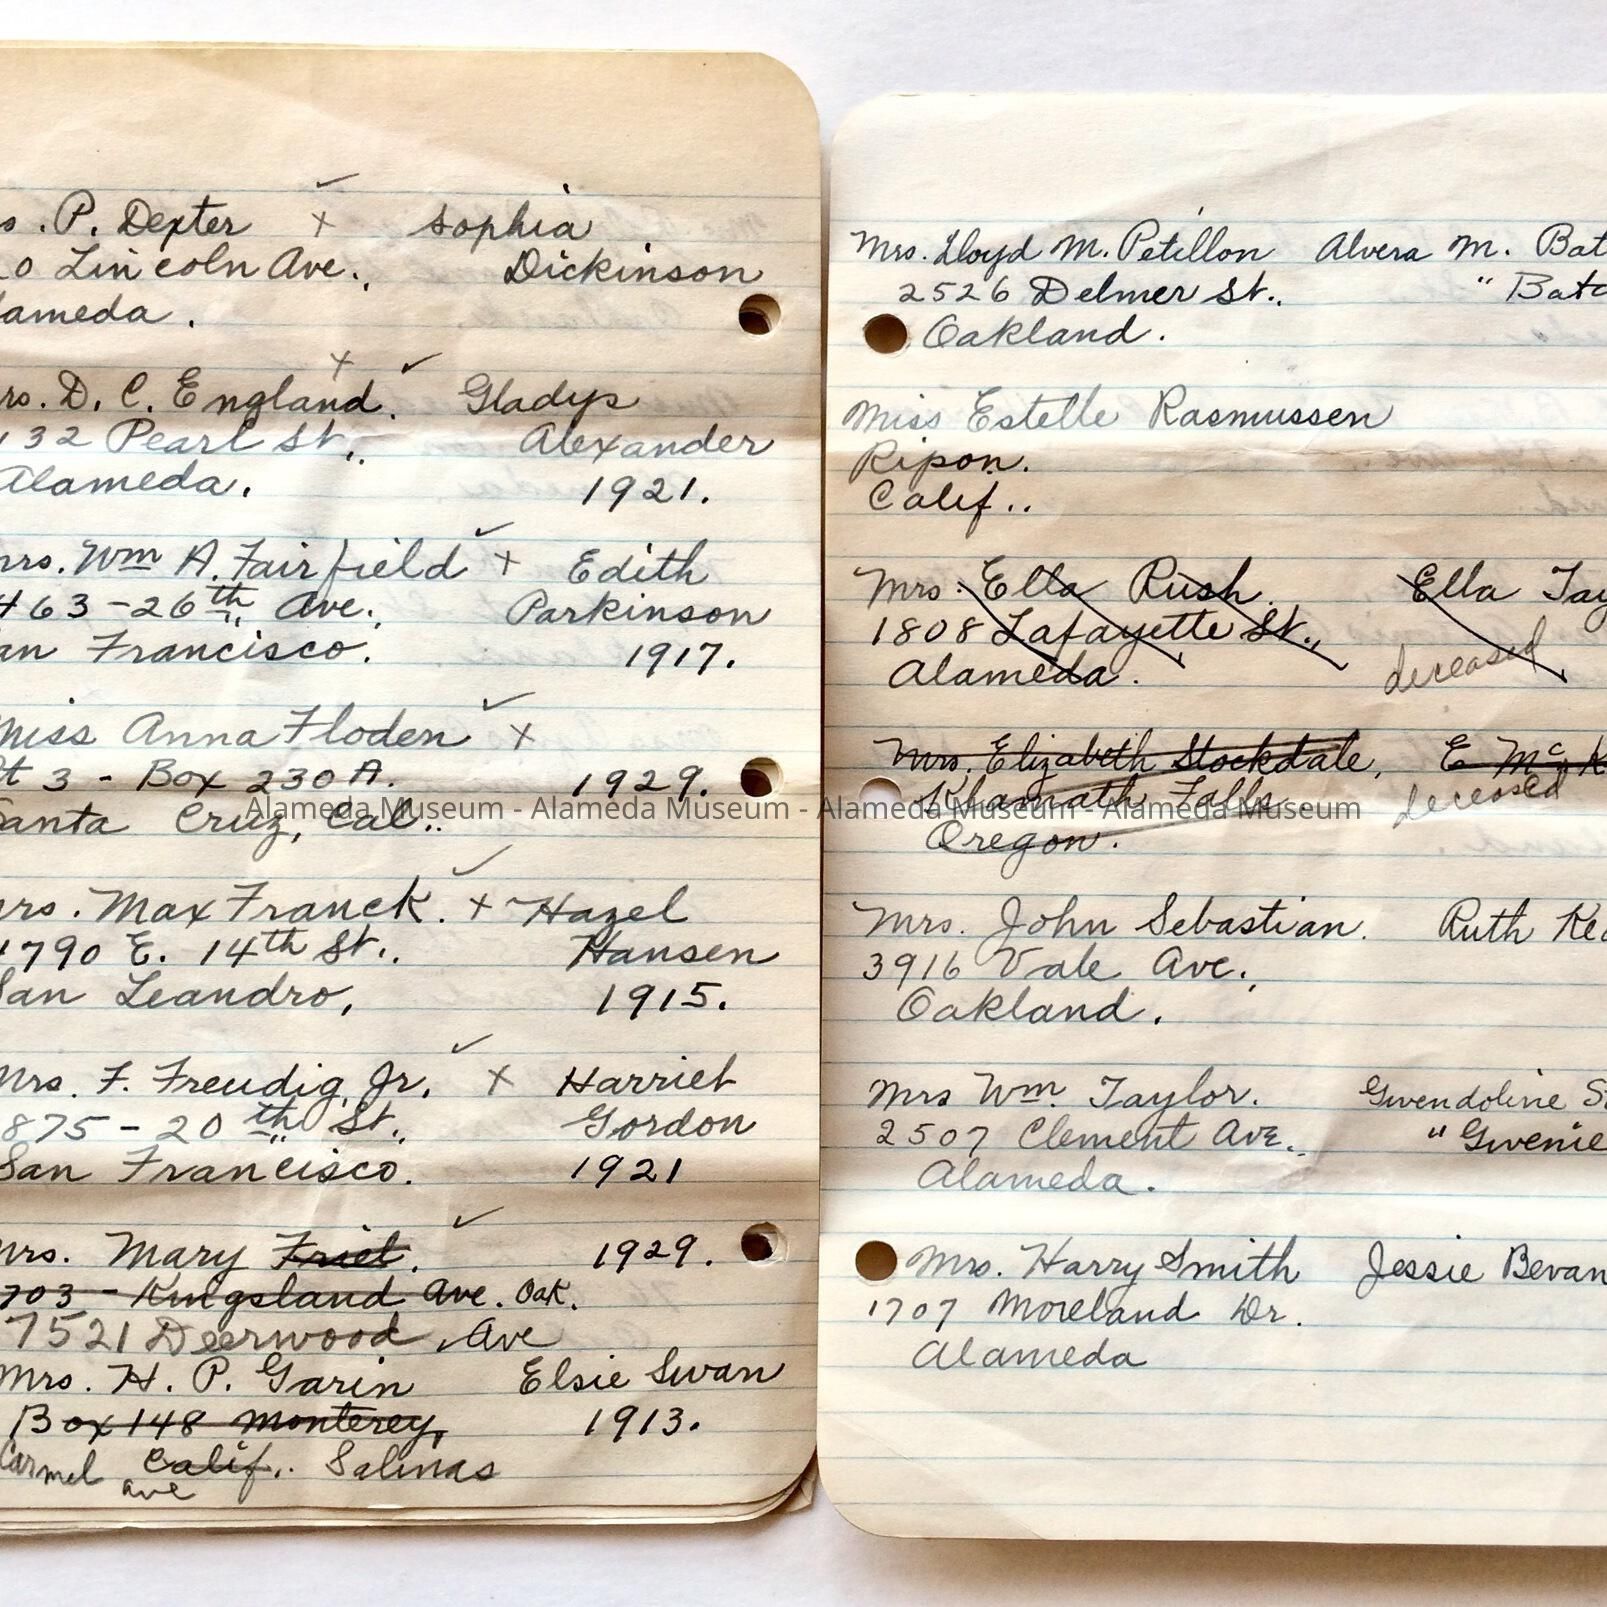 s. P. Dexter x Sophia
0 Lincoln Ave., Dickinson
lameda.
rs. D. C. England. Gladys
32 Pearl St., Alexander
Alameda. 1921.
rs. Wm A. Fairfield x Edith
463 - 26th Ave., Parkinson
an Francisco. 1917.
Miss Anna Floden x
t 3 - Box 230 A. 1929.
Santa Cruz, Cal..
rs. Max Franck. x Hazel
1790 E. 14th St., Hansen
San Leandro, 1915.
Mrs. F. Freudig, Jr. x Harriet
875 - 20th St., Gordon
San Francisco. 1921
Mrs. Mary Friel. 1929.
703 - Kingsland Ave. Oak.
7521 Deerwood Ave
Mrs. H. P. Garin Elsie Swan
Box 148 Monterey, 1913.
Carmel Calif.. Salinas
ave
Mrs. Lloyd M. Petillon Alvera M. Bat
2526 Delmer St., " Batc
Oakland.
Miss Estelle Rasmussen
Ripon.
Calif..
Mrs. Ella Rush. Ella Tay
1808 Lafayette St.,
Alameda. deceased
Mrs. Elizabeth Stockdale, E McK
Klamath Falls deceased
Oregon.
Mrs. John Sebastian. Ruth Ke
3916 Vale Ave.,
Oakland.
Mrs Wm. Taylor. Gwendoline S
2507 Clement Ave.. " Gwenie
Alameda.
Mrs. Harry Smith Jessie Bevan
1707 Moreland Dr.
Alameda
Alameda Museum - Alameda Museum - Alameda Museum - Alameda Museum